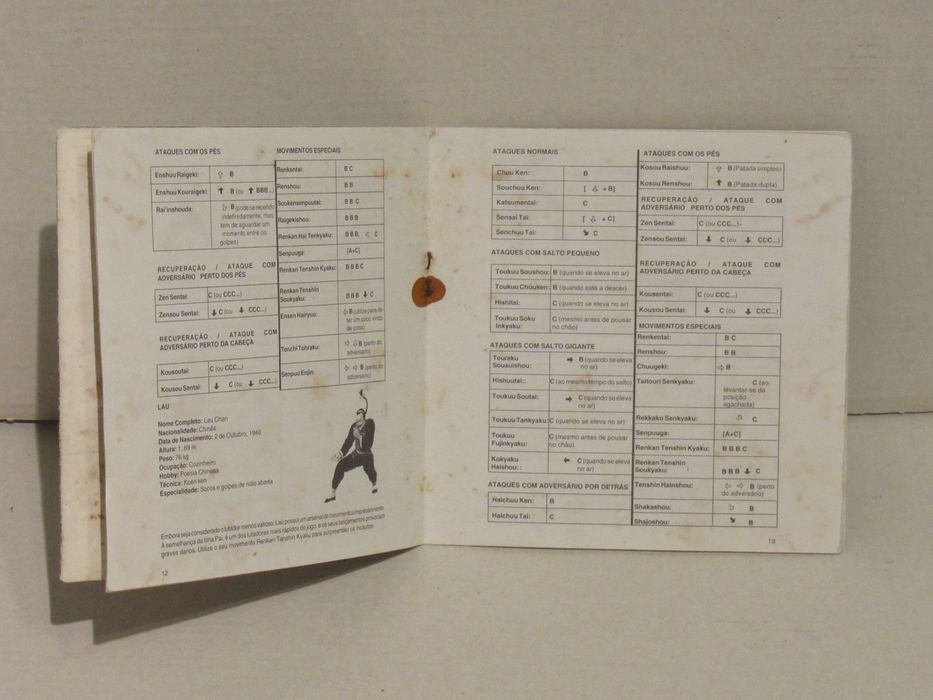 ATAQUES COM OS PÉS
Enshuu Raigeki: ⇧ B
Enshuu Kouraigeki: ⬆ B (ou ⬆ BBB...)
Rai'inshouda: B (pode se repetido
indefinidamente, mas
tem de aguardar um
momento entre os
golpes)
RECUPERAÇÃO / ATAQUE COM
ADVERSÁRIO PERTO DOS PÉS
Zen Sentai: C (ou CCC...)
Zensou Sentai: ⬇ C (ou ⬇ CCC...)
RECUPERAÇÃO / ATAQUE COM
ADVERSÁRIO PERTO DA CABEÇA
Kousoutai: C (ou CCC...)
Kousou Sentai: ⬇ C (ou ⬇ CCC...)
LAU
Nome Completo: Lau Chan
Nacionalidade: Chinês
Data de Nascimento: 2 de Outubro, 1940
Altura: 1, 69 m
Peso: 76 kg
Ocupação: Cozinheiro
Hobby: Poesia Chinesa
Técnica: Koen ken
Especialidade: Socos e golpes de mão aberta
Embora seja considerado o lutador menos valioso, Lau possui um arsenal de movimentos impressionante.
À semelhança da filha Pai, é um dos lutadores mais rápidos do jogo, e os seus lançamentos provocam
graves danos. Utilize o seu movimento Renkan Tenshin Kyaku para surpreender os incautos.
12
MOVIMENTOS ESPECIAIS
Renkentai: B C
Renshou: B B
Soukensenpuutai: B B C
Raigekishou: B B B
Renkan Hai Tenkyaku: B B B, C
Senpuuga: [A+C]
Renkan Tenshin Kyaku: B B B C
Renkan Tenshin
Soukyaku: B B B ⬇ C
Ensen Hairyuu: ⇦ B (utilize para de-
ter um soco vindo
de cima)
Tenchi Tohraku: ⇦ ⇩ B (perto do
adversário)
Senpuu Enjin: ⇦ ⇨ B (perto do
adversário)
ATAQUES NORMAIS
Chuu Ken: B
Souchuu Ken: [ ⇩ + B]
Katsumental: C
Sensai Tai: [ ⇩ + C]
Senchuu Tai: ⬊ C
ATAQUES COM SALTO PEQUENO
Toukuu Soushou: B (quando se eleva no ar)
Toukuu Chouken: B (quando está a descer)
Hishitai: C (quando se eleva no ar)
Toukuu Soku
Inkyaku: C (mesmo antes de pousar
no chão)
ATAQUES COM SALTO GIGANTE
Touraku
Sousuishou: ➡ B (quando se eleva
no ar)
Hishuutai:: C (ao mesmo tempo do salto)
Toukuu Soutai: ➡ C (quando se eleva
no ar)
Toukuu Tankyaku: C (quando se eleva no ar)
Toukuu
Fujinkyaku: C (mesmo antes de pousar
no chão)
Kokyaku
Haishou:: ⬅ C (quando se eleva
no ar)
ATAQUES COM ADVERSÁRIO POR DETRÁS
Haichuu Ken: B
Haichuu Tai: C
ATAQUES COM OS PÉS
Kosou Raishuu: ⇧ B (Patada simples)
Kosou Renshuu: ⬆ B (Patada dupla)
RECUPERAÇÃO / ATAQUE COM
ADVERSÁRIO PERTO DOS PÉS
Zen Sentai: C (ou CCC...)-
Zensou Sentai: ⬇ C (ou ⬇ CCC...)
RECUPERAÇÃO / ATAQUE COM
ADVERSÁRIO PERTO DA CABEÇA
Kousentai: C (ou CCC...)
Kousou Sentai: ⬇ C (ou ⬇ CCC...)
MOVIMENTOS ESPECIAIS
Renkentai: B C
Renshou: B B
Chuugeki: ⇨ B
Taitouri Senkyaku: C (ao
levantar-se da
posição
agachada)
Rekkako Senkyaku: C
Senpuuga: [A+C]
Renkan Tenshin Kyaku: B B B C
Renkan Tenshin
Soukyaku: B B B ⬇ C
Tenshin Hainshou: ⇦ ⇨ B (perto
do adversário)
Shakashou: B
Shajoshou: ⬊ B
13